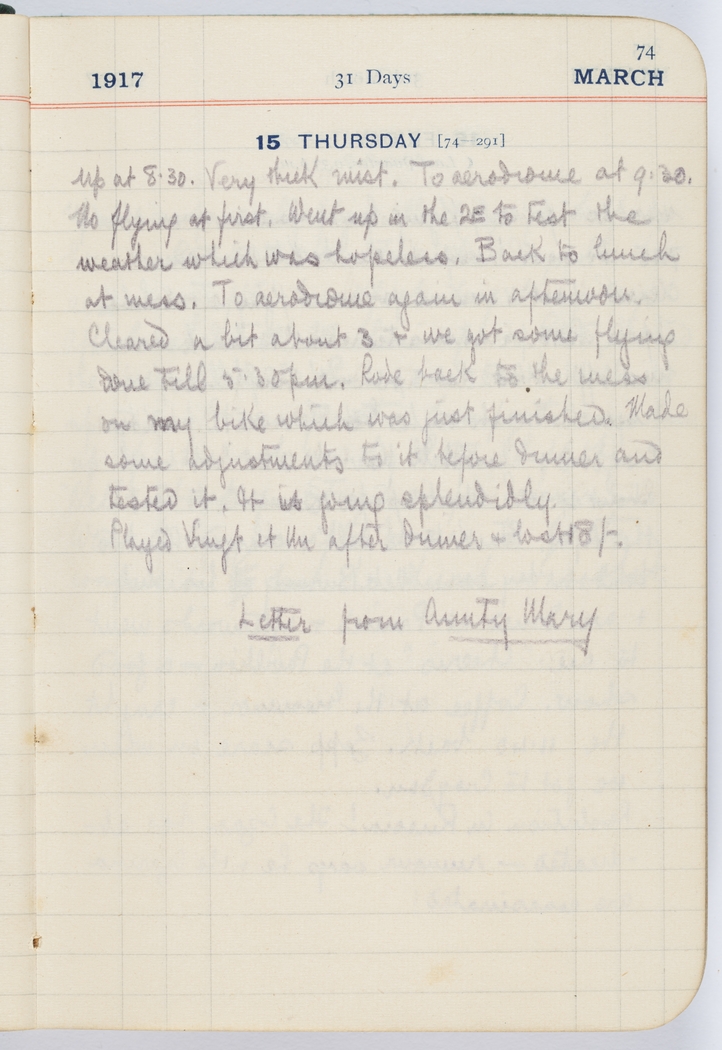 74
1917 31 Days MARCH
15 THURSDAY [74—291]
Up at 8.30. Very thick mist. To aerodrome at 9.30.
No flying at first. Went up in the 2E to test the
weather which was hopeless. Back to lunch
at mess. To aerodrome again in afternoon.
Cleared a bit about 3 & we got some flying
done till 5.30pm. Rode back to the mess
on my bike which was just finished. Made
some adjustments to it before dinner and
tested it. It is going splendidly.
Played Vingt et Un after dinner & lost 18/-.
Letter from Aunty Mary